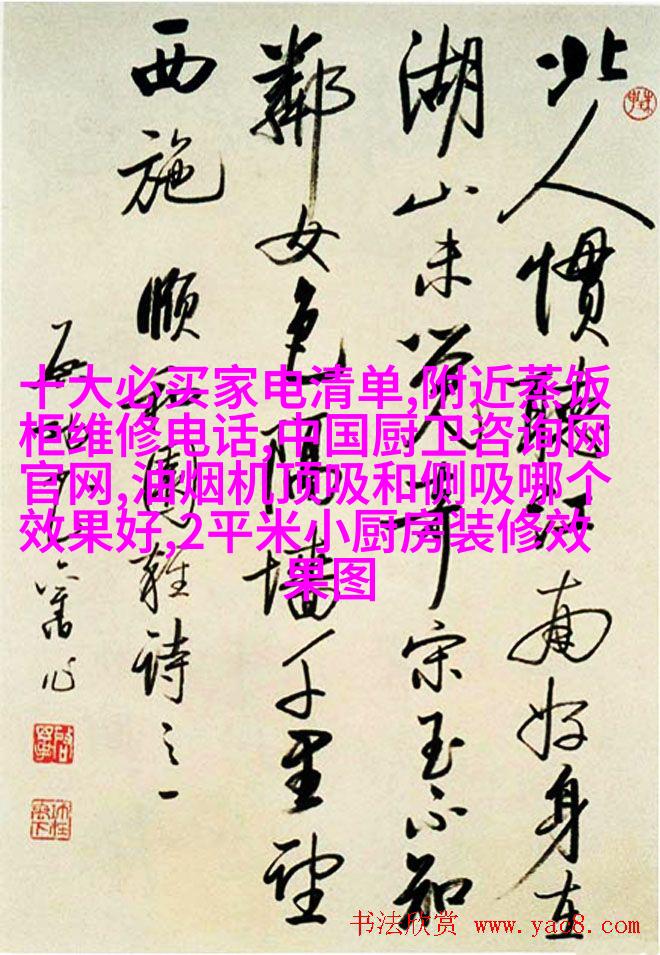 北人慣聽江南好身在
湖山未覺奇宋玉不知
鄰女色隔墻千里望
西施 頤和園雜詩之一
舊作
十大必买家电清单,附近蒸饭
柜维修电话,中国厨卫咨询网
官网,油烟机顶吸和侧吸哪个
效果好,2平米小厨房装修效
果图
书法欣赏 www.yac8.com